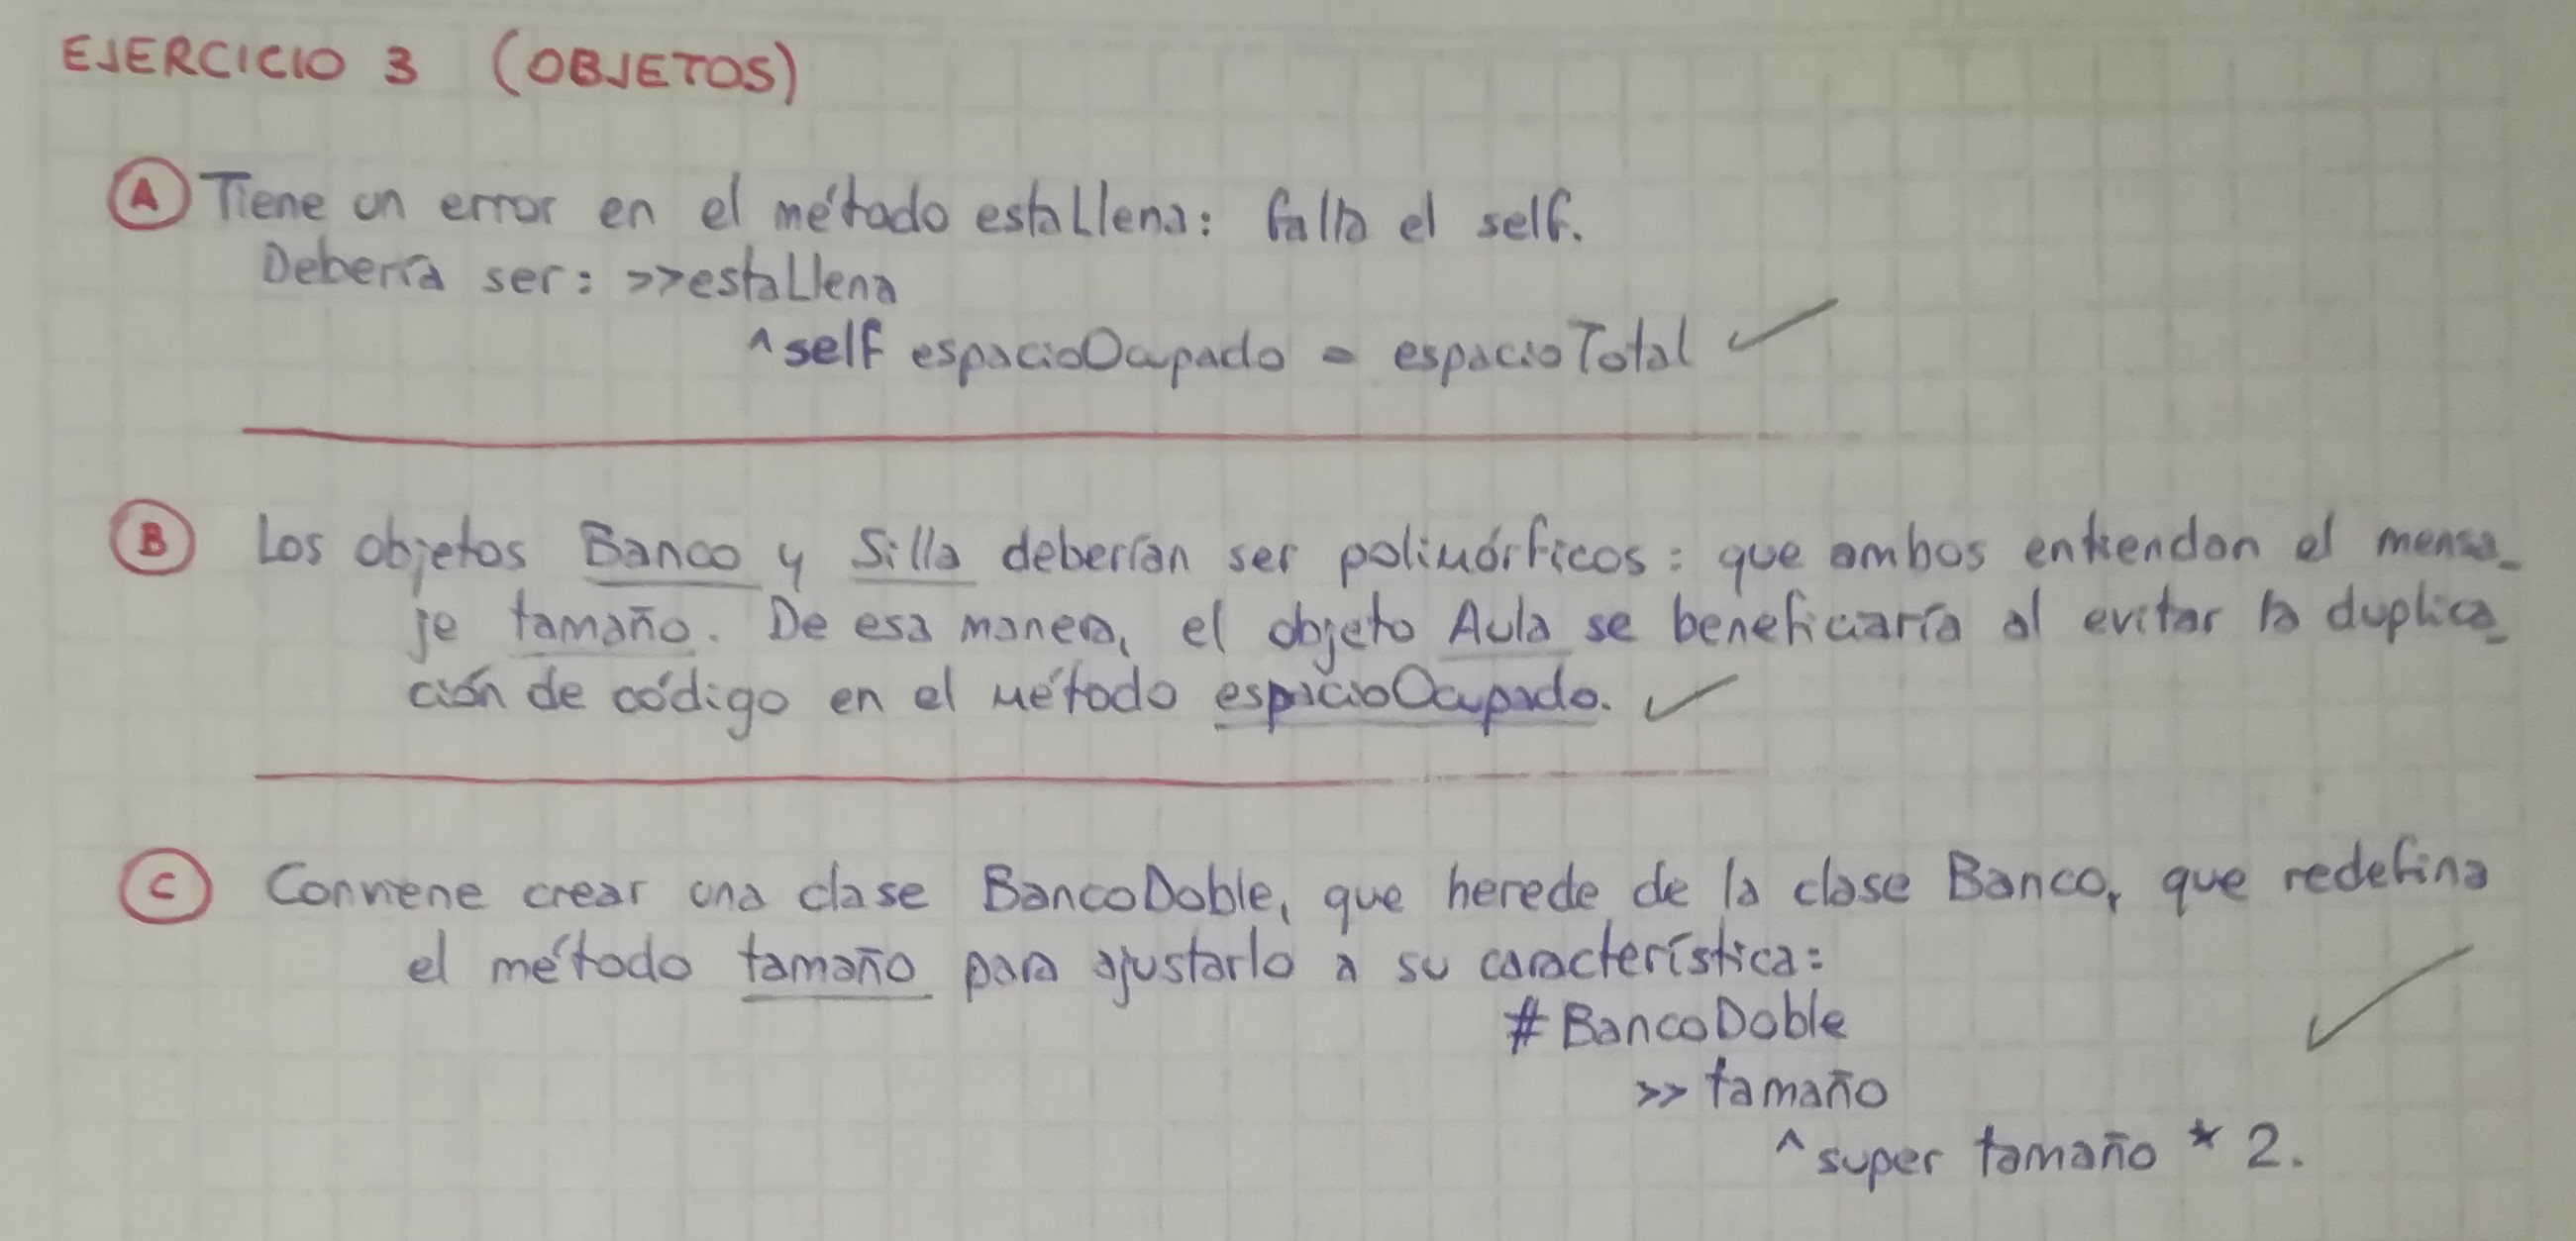 EJERCICIO 3 (OBJETOS)
A Tiene un error en el método estaLlena: falta el self.
Debería ser: >>estaLlena
^ self espacioOcupado = espacioTotal
B Los objetos Banco y Silla deberían ser polimórficos: que ambos entiendan el mensa-
je tamaño. De esa manera, el objeto Aula se beneficiaría al evitar la duplica-
ción de código en el método espacioOcupado.
C Conviene crear una clase BancoDoble, que herede de la clase Banco, que redefina
el método tamaño para ajustarlo a su característica:
# BancoDoble
>> tamaño
^ super tamaño * 2.